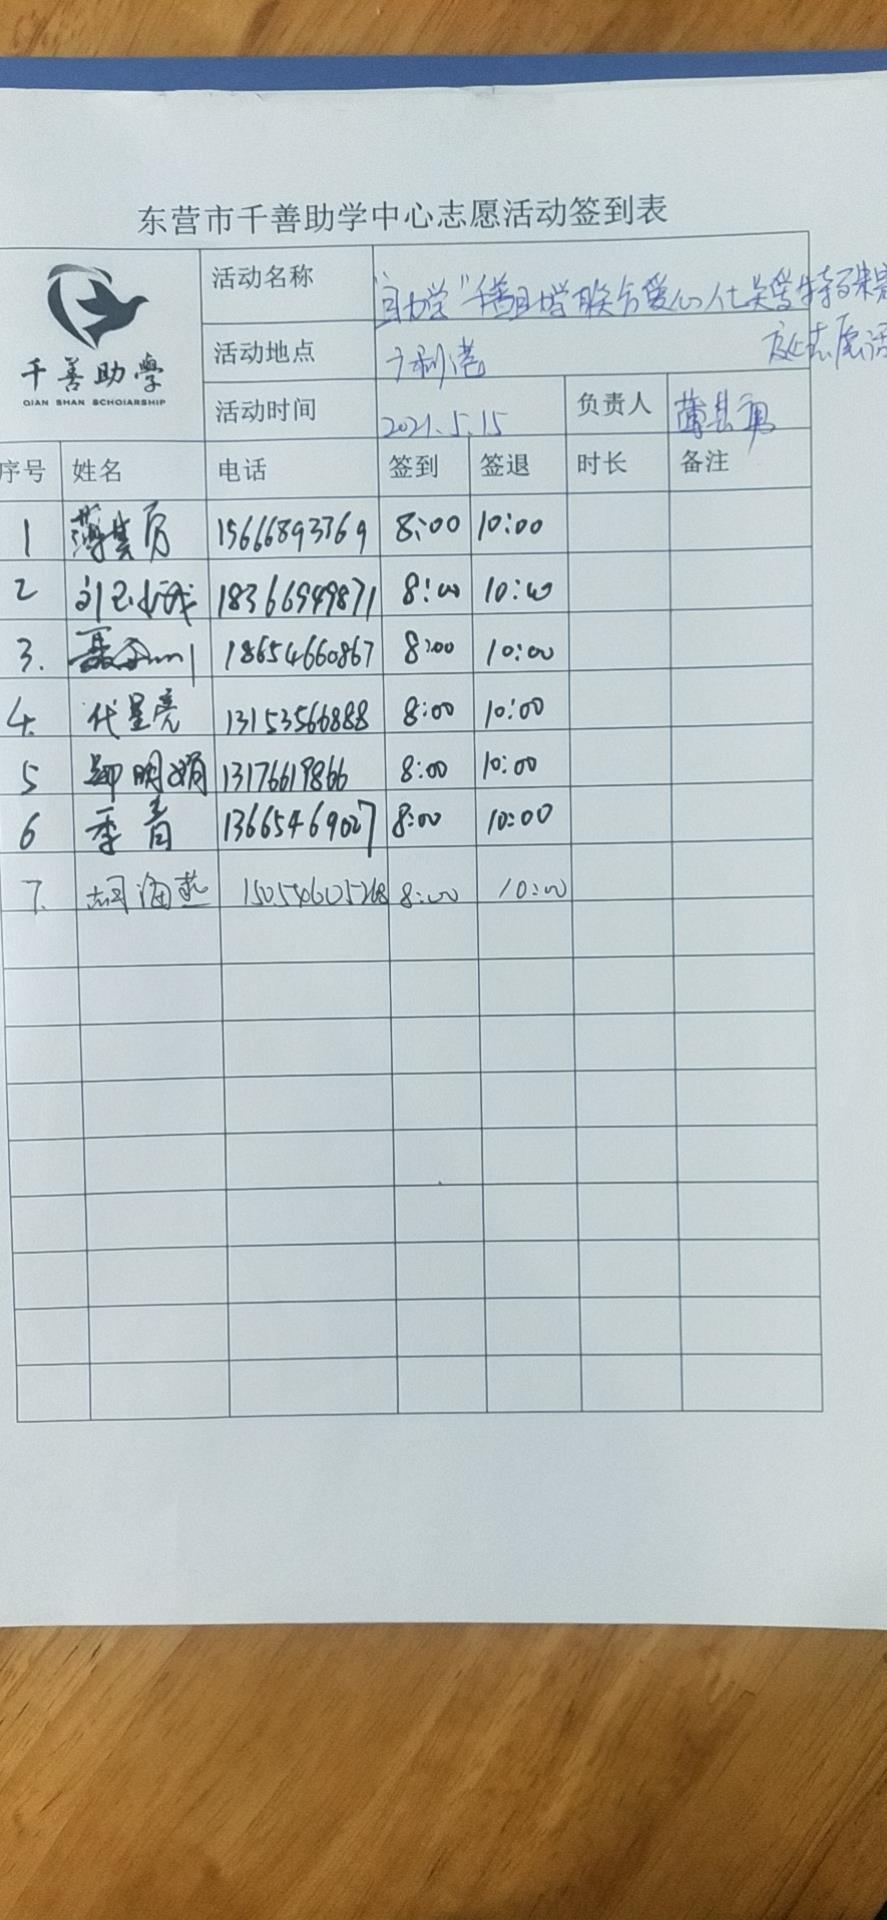 东营市千善助学中心志愿活动签到表
千善助學
QIAN SHAN SCHOIARSHIP
活动名称 助学"千善助学联合爱心人士关爱特殊
志愿活
活动地点 广利港
活动时间 2021.5.15 负责人
序号 姓名 电话 签到 签退 时长 备注
1 15666893769 8:00 10:00
2 18366949871 8:00 10:00
3. 18654660867 8:00 10:00
4. 代星亮 13153566888 8:00 10:00
5 明娟 13176619866 8:00 10:00
6 季青 13665469027 8:00 10:00
7. 胡海燕 15054605268 8:00 10:00